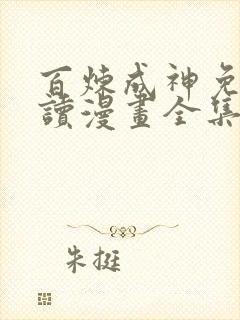 百煉成神免
讀漫畫全集
朱挺